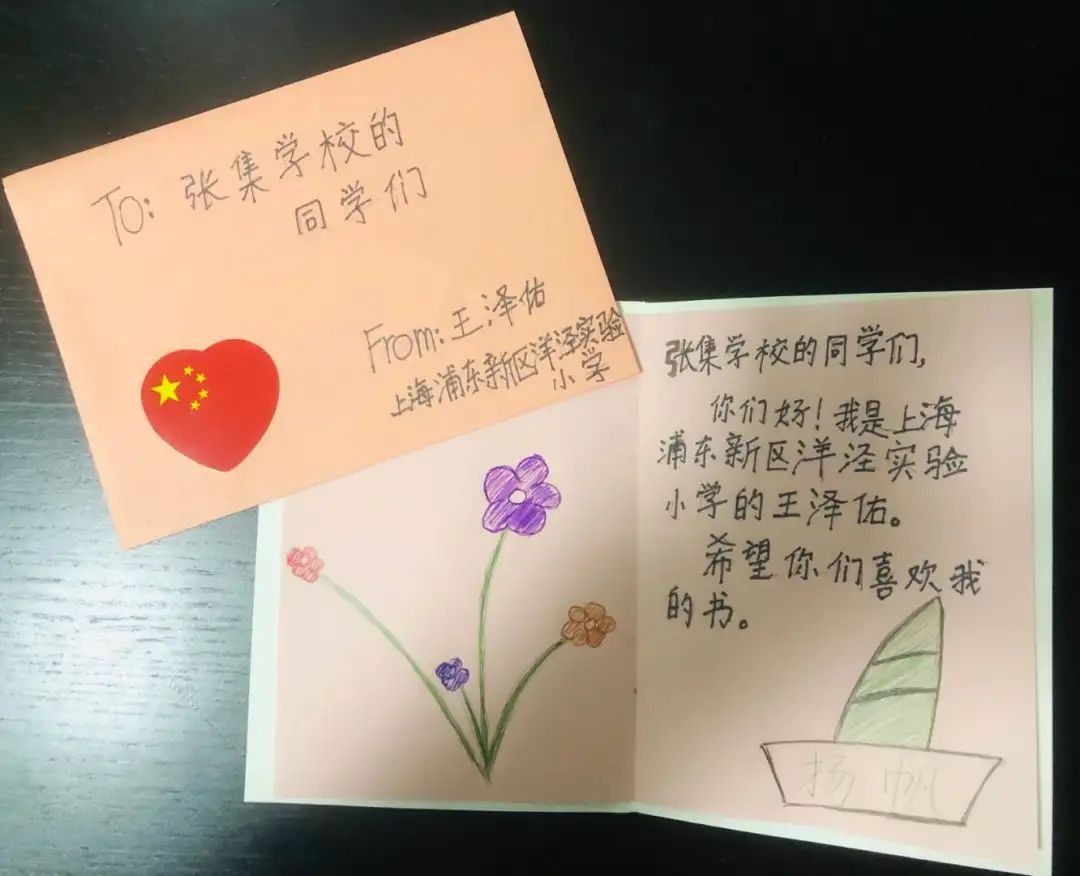 To: 张集学校的
同学们
From: 王泽佑
上海浦东新区洋泾实验
小学
张集学校的同学们,
你们好!我是上海
浦东新区洋泾实验
小学的王泽佑。
希望你们喜欢我
的书。
扬帆